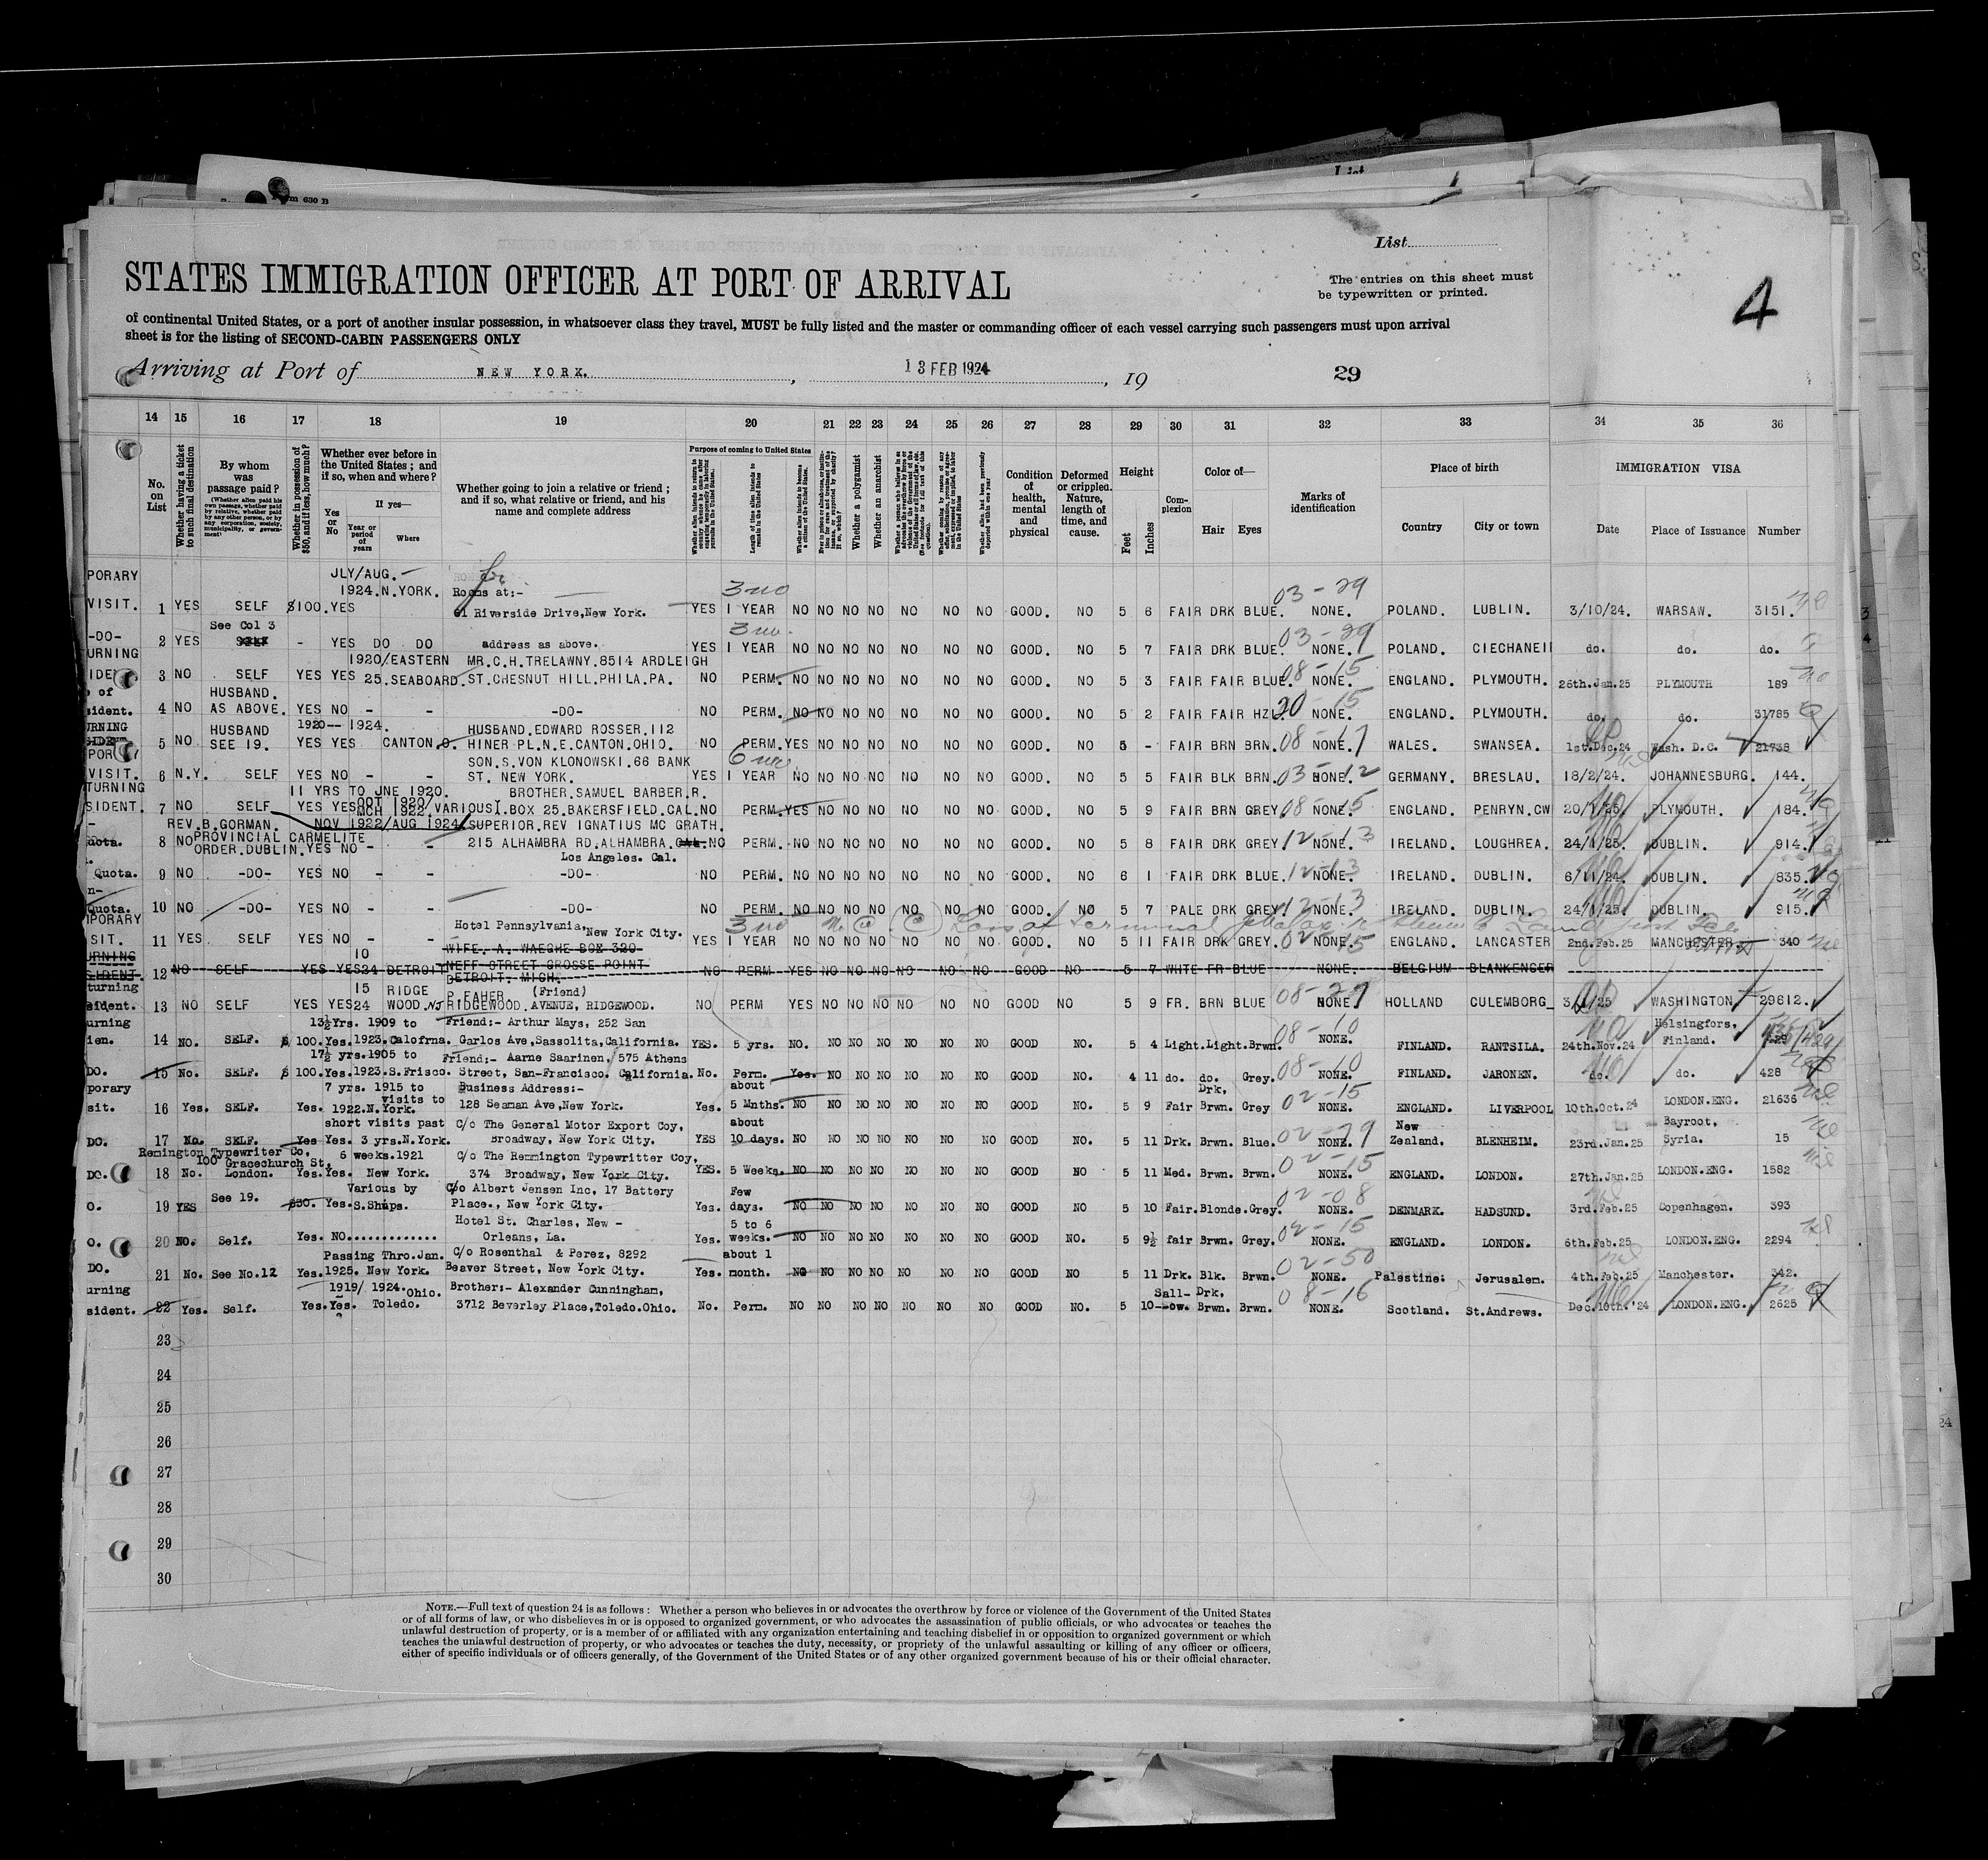 List
m 630 B
List
STATES IMMIGRATION OFFICER AT PORT OF ARRIVAL
The entries on this sheet must
be typewritten or printed.
4
of continental United States, or a port of another insular possession, in whatsoever class they travel, MUST be fully listed and the master or commanding officer of each vessel carrying such passengers must upon arrival
sheet is for the listing of SECOND-CABIN PASSENGERS ONLY
Arriving at Port of NEW YORK. , 13 FEB 1924 , 19 29
14 15 16 17 18 19 20 21 22 23 24 25 26 27 28 29 30 31 32 33 34 35 36
No. on List
Whether having a ticket to such final destination
By whom was passage paid?
(Whether alien paid his own passage, whether paid by relative, whether paid by any other person, or by any corporation, society, municipality, or government)
Whether in possession of $50, and if less, how much?
Whether ever before in the United States; and if so, when and where?
If yes—
Yes or No
Year or period of years
Where
Whether going to join a relative or friend; and if so, what relative or friend, and his name and complete address
Purpose of coming to United States
Length of time alien intends to remain in the United States
Whether alien intends to become a citizen of the United States.
Whether a polygamist
Whether an anarchist
Condition of health, mental and physical
Deformed or crippled. Nature, length of time, and cause.
Height
Feet
Inches
Complexion
Color of—
Hair Eyes
Marks of identification
Place of birth
Country City or town
IMMIGRATION VISA
Date Place of Issuance Number
PORARY JLY/AUG.—
1924.N.YORK. Rooms at:- 3 mo 03-29
VISIT. 1 YES SELF $100.YES 61 Riverside Drive,New York. YES 1 YEAR NO NO NO NO NO NO NO GOOD. NO 5 6 FAIR DRK BLUE. NONE. POLAND. LUBLIN. 3/10/24. WARSAW. 3151.
See Col 3 3 mo. 03-29
-DO- 2 YES SELF - YES DO DO address as above. YES 1 YEAR NO NO NO NO NO NO NO GOOD. NO 5 7 FAIR DRK BLUE. NONE. POLAND. do. do. do.
URNING 1920/EASTERN MR.C.H.TRELAWNY.8514 ARDLEIGH 08-15
IDE 3 NO SELF YES YES 25.SEABOARD. ST.CHESNUT HILL.PHILA.PA. NO PERM. NO NO NO NO NO NO NO GOOD. NO 5 3 FAIR FAIR BLUE. NONE. ENGLAND. PLYMOUTH. 26th.Jan.25 PLYMOUTH 189
of HUSBAND. 20-15
sident. 4 NO AS ABOVE. YES NO - - -DO- NO PERM. NO NO NO NO NO NO NO GOOD. NO 5 2 FAIR FAIR HZL. NONE. ENGLAND. PLYMOUTH. do. do. 31785
URNING HUSBAND 1920-- 1924. HUSBAND.EDWARD ROSSER.112 08-17
5 NO SEE 19. YES YES CANTON.O. HINER PL.N.E.CANTON.OHIO. NO PERM. YES NO NO NO NO NO NO GOOD. NO 5 - FAIR BRN BRN. NONE. WALES. SWANSEA. 1st.Dec.24 Wash. D.C. 21738
POR SON.S.VON KLONOWSKI.66 BANK 6 mo. 03-12
VISIT. 6 N.Y. SELF YES NO - - ST. NEW YORK. YES 1 YEAR NO NO NO NO NO NO NO GOOD. NO 5 5 FAIR BLK BRN. NONE. GERMANY. BRESLAU. 18/2/24. JOHANNESBURG. 144.
TURNING 11 YRS TO JNE 1920. BROTHER.SAMUEL BARBER.R.
OCT 1920/
SIDENT. 7 NO SELF YES YES MCH 1922.VARIOUS I.BOX 25.BAKERSFIELD.CAL. NO PERM. YES NO NO NO NO NO NO GOOD. NO 5 9 FAIR BRN GREY 08-15 NONE. ENGLAND. PENRYN.CW 20/1/25. PLYMOUTH. 184.
REV.B.GORMAN. NOV 1922/AUG 1924. SUPERIOR.REV IGNATIUS MC GRATH.
uota. 8 NO PROVINCIAL CARMELITE
ORDER.DUBLIN. YES NO - - 215 ALHAMBRA RD.ALHAMBRA.CAL. NO PERM. NO NO NO NO NO NO NO GOOD. NO 5 8 FAIR DRK GREY 12-13 NONE. IRELAND. LOUGHREA. 24/1/25. DUBLIN. 914.
Los Angeles. Cal.
Quota. 9 NO -DO- YES NO - - -DO- NO PERM. NO NO NO NO NO NO NO GOOD. NO 6 1 FAIR DRK BLUE. 12-13 NONE. IRELAND. DUBLIN. 6/11/24. DUBLIN. 835.
n-
Quota. 10 NO -DO- YES NO - - -DO- NO PERM. NO NO NO NO NO NO NO GOOD. NO 5 7 PALE DRK GREY. 12-13 NONE. IRELAND. DUBLIN. 24/1/25. DUBLIN. 915.
MPORARY Hotel Pennsylvania, 3 mo Loss of
SIT. 11 YES SELF YES NO - - New York City. YES 1 YEAR NO NO NO NO NO NO NO GOOD. NO 5 11 FAIR DRK GREY. 02-15 NONE. ENGLAND. LANCASTER 2nd.Feb.25 MANCHESTER. 340
URNING 10 WIFE. A. WAEGHE BOX 320
SIDENT. 12 NO SELF YES YES 24 DETROIT NEFF STREET GROSSE POINT NO PERM YES NO NO NO NO NO NO GOOD NO 5 7 WHITE FR BLUE NONE. BELGIUM
DETROIT. MICH.
turning 15 RIDGE P.FAHER. (Friend)
sident. 13 NO SELF YES YES 24 WOOD.NJ RIDGEWOOD AVENUE, RIDGEWOOD. NO PERM YES NO NO NO NO NO NO GOOD NO 5 9 FR. BRN BLUE NONE. HOLLAND CULEMBORG 3/1/25 WASHINGTON. 29612.
urning 13½Yrs. 1909 to Friend:- Arthur Mays, 252 San 08-10 Helsingfors,
ien. 14 NO. SELF. $ 100. Yes. 1923.Calofrna. Garlos Ave,Sassolita,California. YES. 5 yrs. NO. NO NO NO NO NO NO GOOD NO. 5 4 Light.Light.Brwn. NONE. FINLAND. RANTSILA. 24th.Nov.24 Finland.
17½ yrs.1905 to Friend:- Aarne Saarinen, 575 Athens 08-10
DO. 15 No. SELF. $ 100.Yes.1923.S.Frisco. Street, San-Francisco. California. No. Perm. Yes. NO NO NO NO NO NO GOOD NO. 4 11 do. do. Grey. NONE. FINLAND. JARONEN. do. do. 428
porary 7 yrs. 1915 to Business Address:- about Drk, 02-15
sit. 16 Yes. SELF. Yes. 1922.N.York. visits to 128 Seaman Ave,New York. Yes. 5 Mnths. NO NO NO NO NO NO NO GOOD NO. 5 9 Fair Brwn. Grey NONE. ENGLAND. LIVERPOOL 10th.Oct.24 LONDON.ENG. 21636
short visits past C/o The General Motor Export Coy, about New Bayroot,
DO. 17 No. SELF. Yes Yes. 3 yrs.N.York. Broadway, New York City. YES 10 days. NO NO NO NO NO NO NO GOOD NO. 5 11 Drk. Brwn. Blue. 02-29 NONE. Zealand. BLENHEIM. 23rd.Jan.25 Syria. 15
Remington Typewriter Co, 6 weeks.1921 C/o The Remmington Typewritter Coy,
100 Gracechurch St,
DO. 18 No. London. Yes.Yes. New York. 374 Broadway, New York City. YES. 5 Weeks. NO NO NO NO NO NO NO GOOD NO 5 11 Med. Brwn. Brwn. 02-15 NONE. ENGLAND. LONDON. 27th.Jan.25 LONDON.ENG. 1582
Various by C/o Albert Jensen Inc, 17 Battery Few 02-08
O. 19 YES See 19. $50. Yes. S.Ships. Place., New York City. Yes. days. NO NO NO NO NO NO NO GOOD NO 5 10 Fair.Blonde.Grey. NONE. DENMARK. HADSUND. 3rd.Feb.25 Copenhagen. 393
Hotel St. Charles, New - 5 to 6 02-15
O. 20 NO. Self. Yes. NO............. Orleans, La. Yes. weeks. NO NO NO NO NO NO NO GOOD NO. 5 9½ fair Brwn. Grey. NONE. ENGLAND. LONDON. 6th.Feb.25 LONDON.ENG. 2294
DO. Passing Thro.Jan. C/o Rosenthal & Perez, 8292 about 1 02-50
21 No. See No.12 Yes. 1925. New York. Beaver Street, New York City. Yes. month. NO NO NO NO NO NO NO GOOD NO 5 11 Drk. Blk. Brwn. NONE. Palestine: Jerusalem. 4th.Feb.25 Manchester. 342.
urning 1919/ 1924. Ohio. Brother:- Alexander Cunningham, Sall- Drk. 08-16
sident. 22 Yes. Self. Yes.Yes. Toledo. 3712 Beverley Place,Toledo.Ohio. No. Perm. NO NO NO NO NO NO NO GOOD NO. 5 10 -ow. Brwn. Brwn. NONE. Scotland. St.Andrews. Dec.10th.'24 LONDON.ENG. 2625
23
24
25
26
27
28
29
30
NOTE.—Full text of question 24 is as follows: Whether a person who believes in or advocates the overthrow by force or violence of the Government of the United States
or of all forms of law, or who disbelieves in or is opposed to organized government, or who advocates the assassination of public officials, or who advocates or teaches the
unlawful destruction of property, or is a member of or affiliated with any organization entertaining and teaching disbelief in or opposition to organized government or which
teaches the unlawful destruction of property, or who advocates or teaches the duty, necessity, or propriety of the unlawful assaulting or killing of any officer or officers,
either of specific individuals or of officers generally, of the Government of the United States or of any other organized government because of his or their official character.